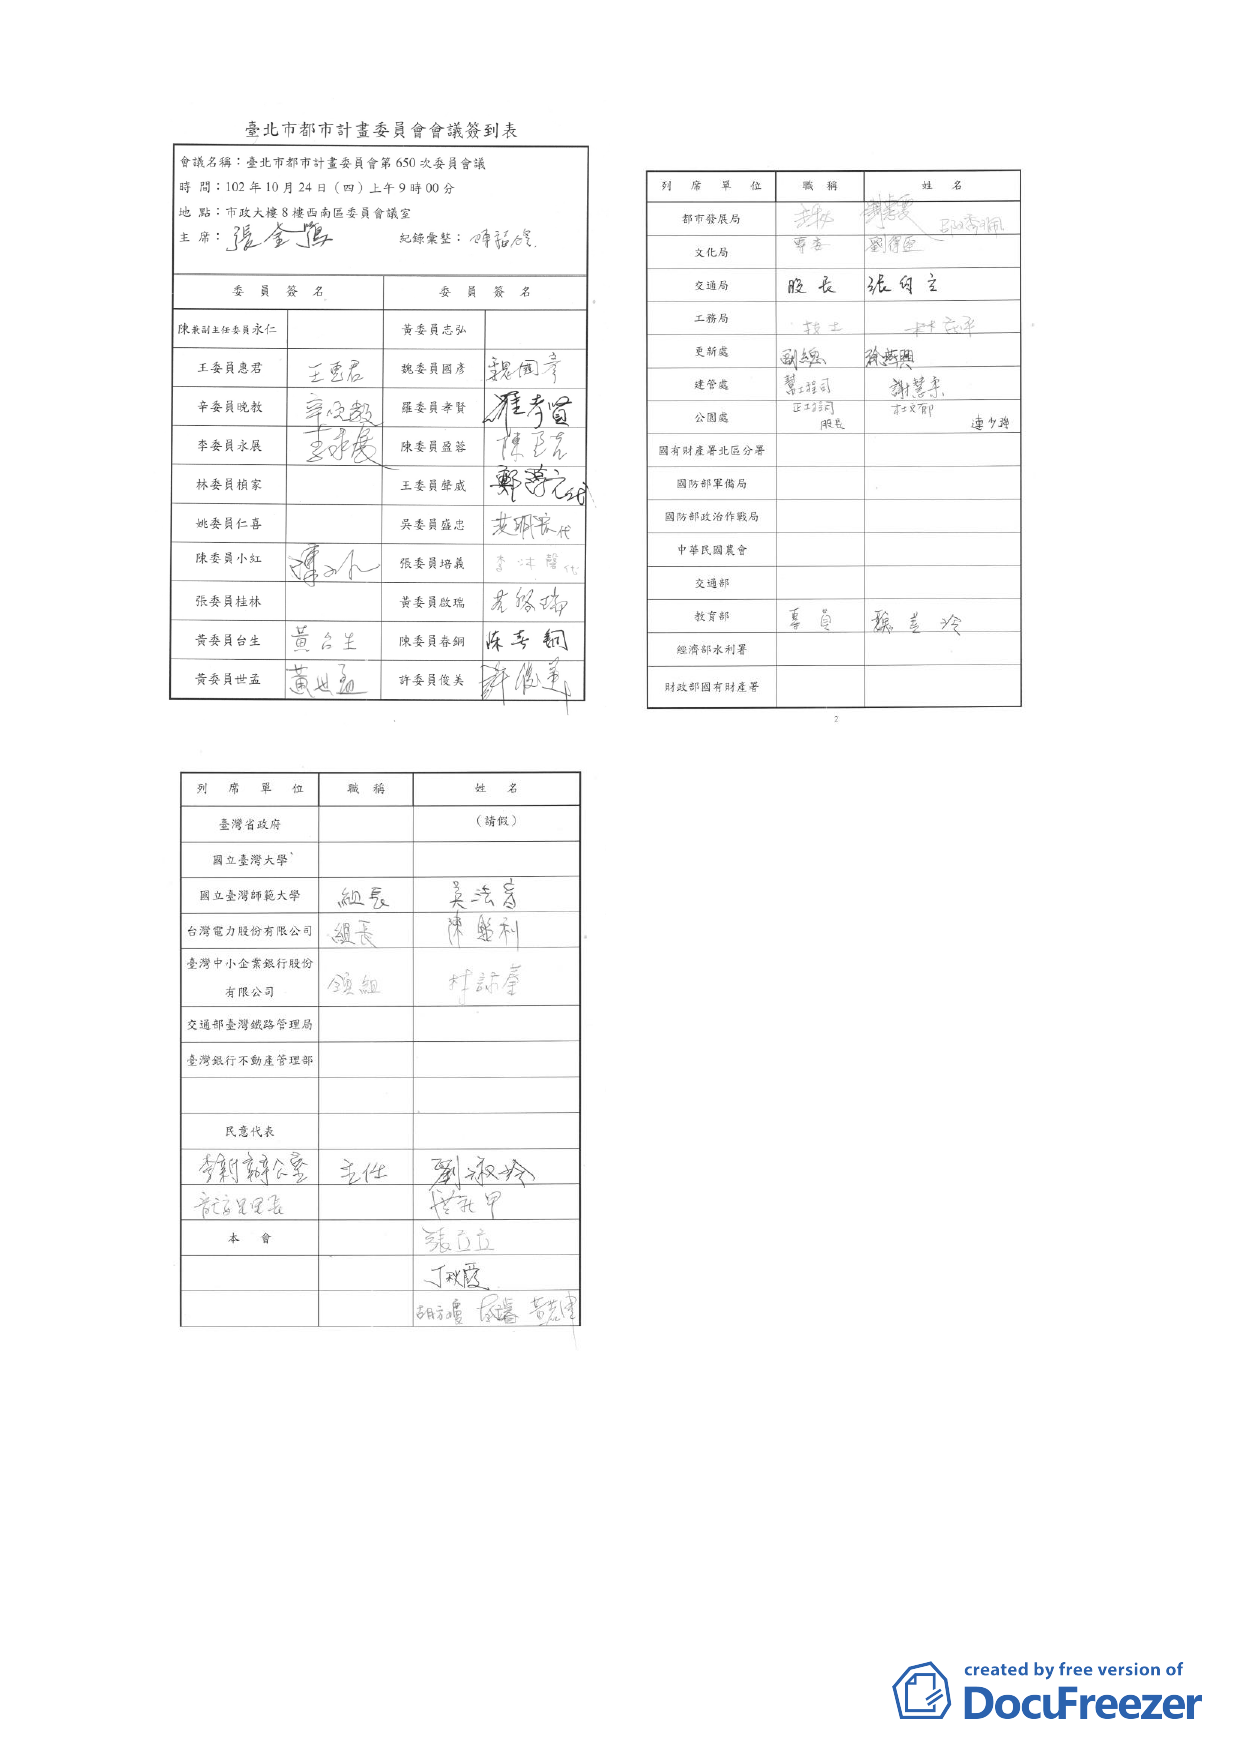 臺北市都市計畫委員會會議簽到表
會議名稱：臺北市都市計畫委員會第 650 次委員會議
時 間：102 年 10 月 24 日（四）上午 9 時 00 分
地 點：市政大樓 8 樓西南區委員會議室
主 席：張金鶚 紀錄彙整：
委 員 簽 名 委 員 簽 名
陳兼副主任委員永仁 黃委員志弘
王委員惠君 王惠君 魏委員國彥 魏國彥
辛委員晚教 辛晚教 羅委員孝賢 羅孝賢
李委員永展 李永展 陳委員盈蓉
林委員楨家 王委員聲威 代
姚委員仁喜 吳委員盛忠 代
陳委員小紅 陳小紅 張委員培義 代
張委員桂林 黃委員啟瑞 黃啟瑞
黃委員台生 黃台生 陳委員春銅 陳春銅
黃委員世孟 黃世孟 許委員俊美 許俊美
列 席 單 位 職 稱 姓 名
都市發展局
文化局 專委 劉得堅
交通局 股長
工務局 技士
更新處 副總 徐燕興
建管處 幫工程司 謝慧柔
公園處 正工程司 股長
國有財產署北區分署
國防部軍備局
國防部政治作戰局
中華民國農會
交通部
教育部 專員
經濟部水利署
財政部國有財產署
2
列 席 單 位 職 稱 姓 名
臺灣省政府 （請假）
國立臺灣大學
國立臺灣師範大學 組長
台灣電力股份有限公司 組長
臺灣中小企業銀行股份
有限公司 領組
交通部臺灣鐵路管理局
臺灣銀行不動產管理部
民意代表
李新辦公室 主任 劉淑玲
里長
本 會 張立立
丁秋霞
created by free version of
DocuFreezer